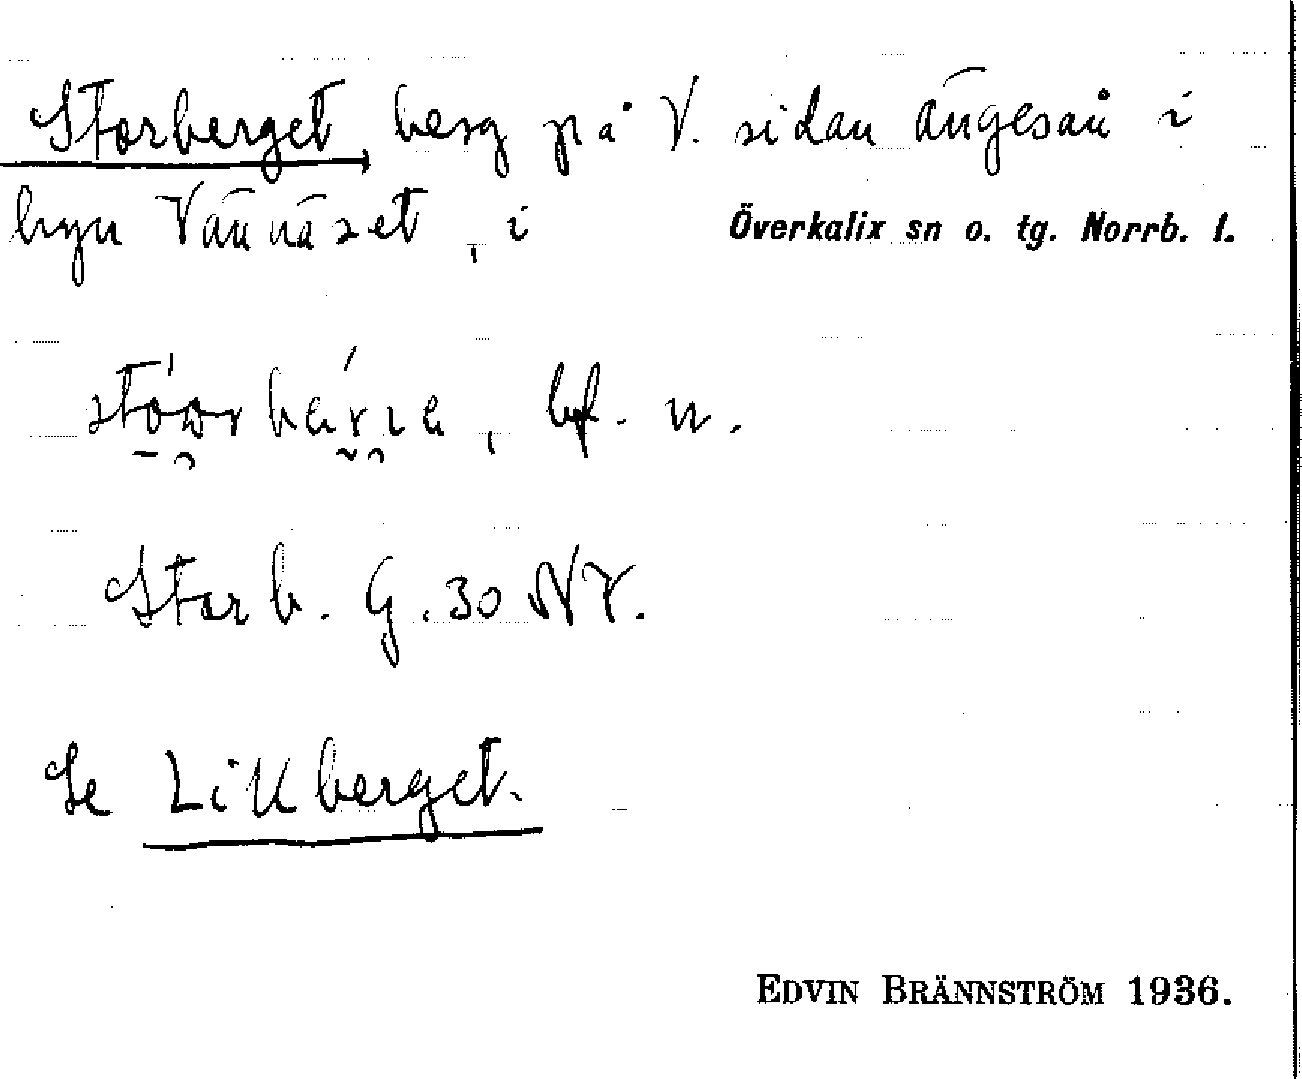 Storberget, berg på V. sidan Ängesån i
byn Vännäset, i Överkalix sn o. tg. Norrb. l.
bf. n.
Storb. G. 30 NV.
Se Likberget.
EDVIN BRÄNNSTRÖM 1936.